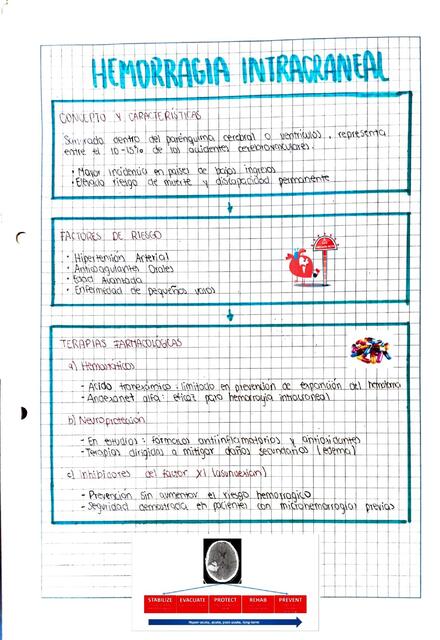 HEMORRAGIA INTRACRANEAL
CONCEPTO Y CARACTERÍSTICAS
Sangrado dentro del parénquima cerebral o ventrículos, representa
entre el 10-15% de los accidentes cerebrovasculares.
· Mayor incidencia en países de bajos ingresos
· Elevado riesgo de muerte y discapacidad permanente
FACTORES DE RIESGO
· Hipertensión Arterial
· Anticoagulantes Orales
· Edad Avanzada
· Enfermedad de pequeños vasos
TERAPIAS FARMACOLÓGICAS
a) Hemostáticos
- Ácido tranexámico: limitado en prevención de expansión del hematoma
- Andexanet alfa: eficaz para hemorragia intracraneal
b) Neuroprotección
- En estudios: fármacos antiinflamatorios y antioxidantes
- Terapias dirigidas a mitigar daños secundarios (edema)
c) Inhibidores del factor XI (asundexian)
- Prevención sin aumentar el riesgo hemorrágico
- Seguridad demostrada en pacientes con microhemorragias previas
STABILIZE EVACUATE PROTECT REHAB PREVENT
Hyper-acute, acute, post-acute, long-term